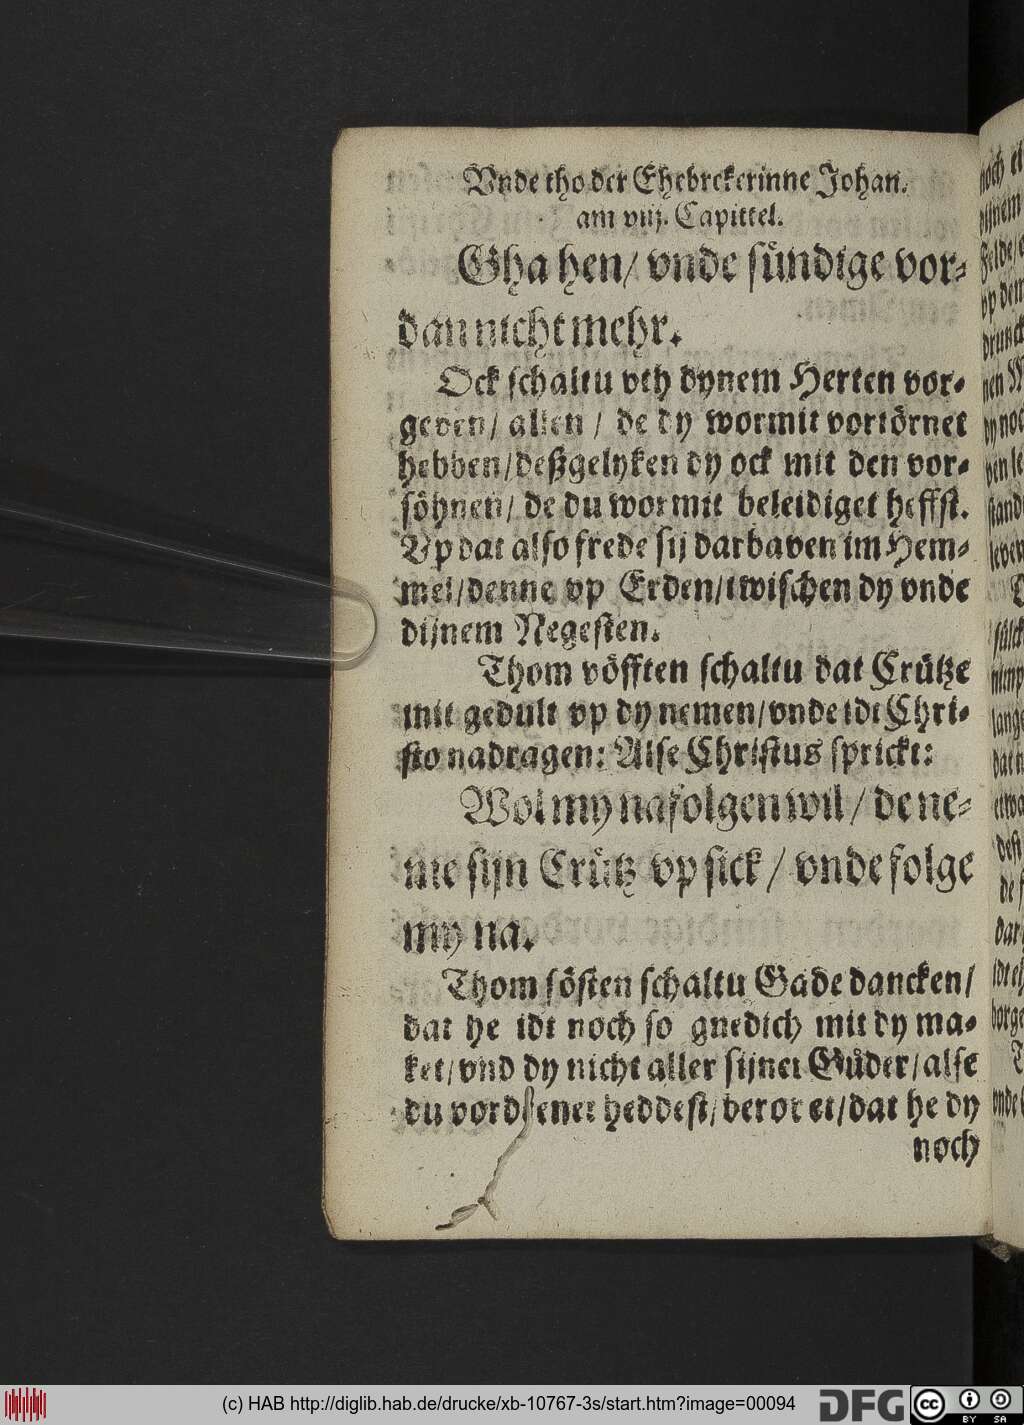 Vnde tho der Ehebrekerinne Johan.
am viij. Capittel.
Gha hen/ vnde sündige vor-
dan nicht mehr.
Ock schaltu vth dynem Herten vor-
geven/ allen / de dy wormit vortörnet
hebben/ deßgelyken dy ock mit den vor-
söhnen/ de du wormit beleidiget heffst.
Vp dat also frede sij darbaven im Hem-
mel/ denne vp Erden/ twischen dy vnde
dijnem Negesten.
Thom vöfften schaltu dat Crütze
mit gedult vp dy nemen/ vnde idt Chri-
sto nadragen: Alse Christus sprickt:
Wol my nafolgen wil / de ne-
me sijn Crütz vp sick / vnde folge
my na.
Thom sösten schaltu Gade dancken/
dat he idt noch so gnedich mit dy ma-
ket/ vnd dy nicht aller sijner Güder/ alse
du vordenet heddest/ berovet/ dat he dy
noch
(c) HAB http://diglib.hab.de/drucke/xb-10767-3s/start.htm?image=00094
DFG
cc
BY SA